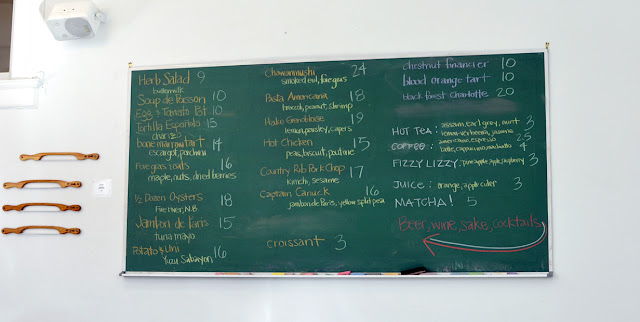 Herb Salad 9
buttermilk
Soup de Poisson 10
Egg & Tomato Tart 10
Tortilla Española 15
chorizo
bone marrow tart 14
escargot, porchini
Foie gras toast 16
maple, nuts, dried berries
1/2 Dozen Oysters 18
N.B.
Jambon de Paris 15
tuna mayo
Potato & Uni 16
Yuzu Sabayon
Chawanmushi 24
smoked eel, foie gras
Pasta Americana 18
broccoli, peanut, shrimp
Hake Grenobloise 19
lemon, parsley, capers
Hot Chicken 15
peas, biscuit, poutine
Country Rib Pork Chop 17
Kimchi, sesame
Captain Canuck 16
jambon de Paris, yellow split pea
croissant 3
chestnut financier 10
blood orange tart 10
black forest charlotte 20
HOT TEA: assam, earl grey, mint 3
lemon verbena, jasmine
COFFEE: americano, espresso 2.5
latte, cappuccino, macchiato 4
FIZZY LIZZY: pineapple, apple, raspberry 3
JUICE: orange, apple cider 3
MATCHA! 5
Beer, wine, sake, cocktails